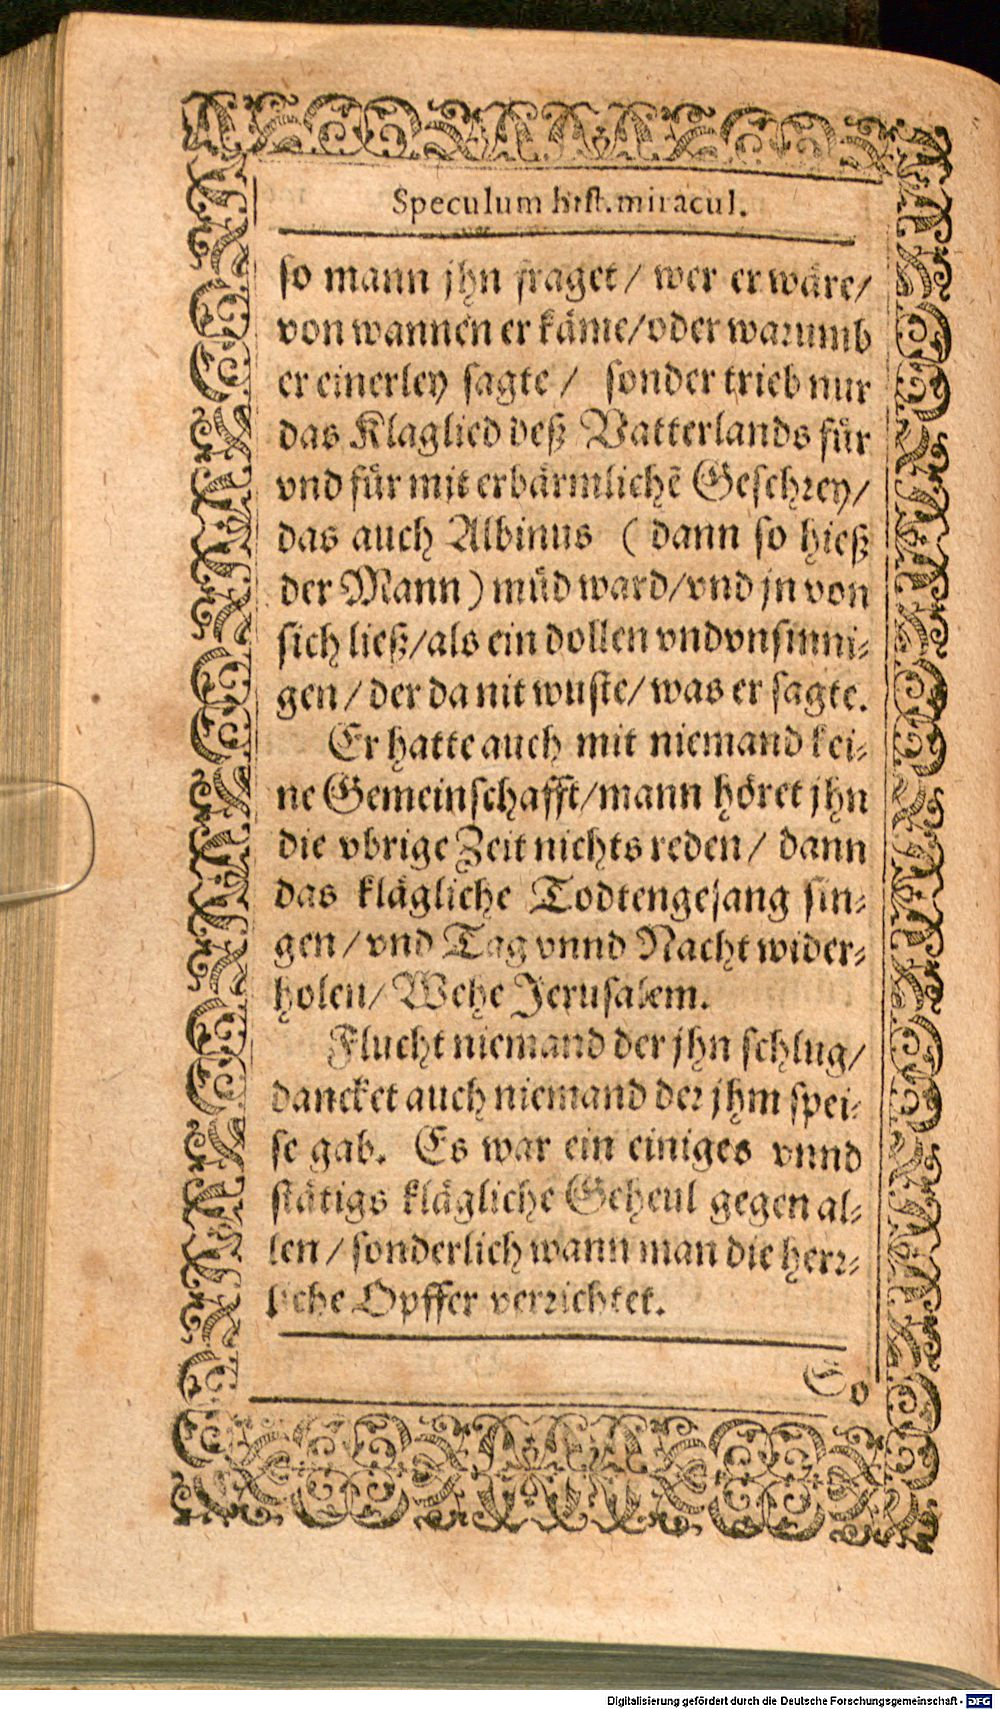 Speculum hist. miracul.
so mann jhn fraget / wer er wäre /
von wannen er käme / oder warumb
er einerley sagte / sonder trieb nur
das Klaglied deß Vatterlands für
vnd für mit erbärmlichẽ Geschrey /
das auch Albinus ( dann so hieß
der Mann ) müd ward / vnd jn von
sich ließ / als ein dollen vnd vnsinni-
gen / der da nit wuste / was er sagte.
Er hatte auch mit niemand kei-
ne Gemeinschafft / mann höret jhn
die vbrige Zeit nichts reden / dann
das klägliche Todtengesang sin-
gen / vnd Tag vnnd Nacht wider-
holen / Wehe Jerusalem.
Flucht niemand der jhn schlug /
dancket auch niemand der jhm spei-
se gab. Es war ein einiges vnnd
stätigs klägliche Geheul gegen al-
len / sonderlich wann man die herr-
liche Opffer verrichtet.
So
Digitalisierung gefördert durch die Deutsche Forschungsgemeinschaft - DFG